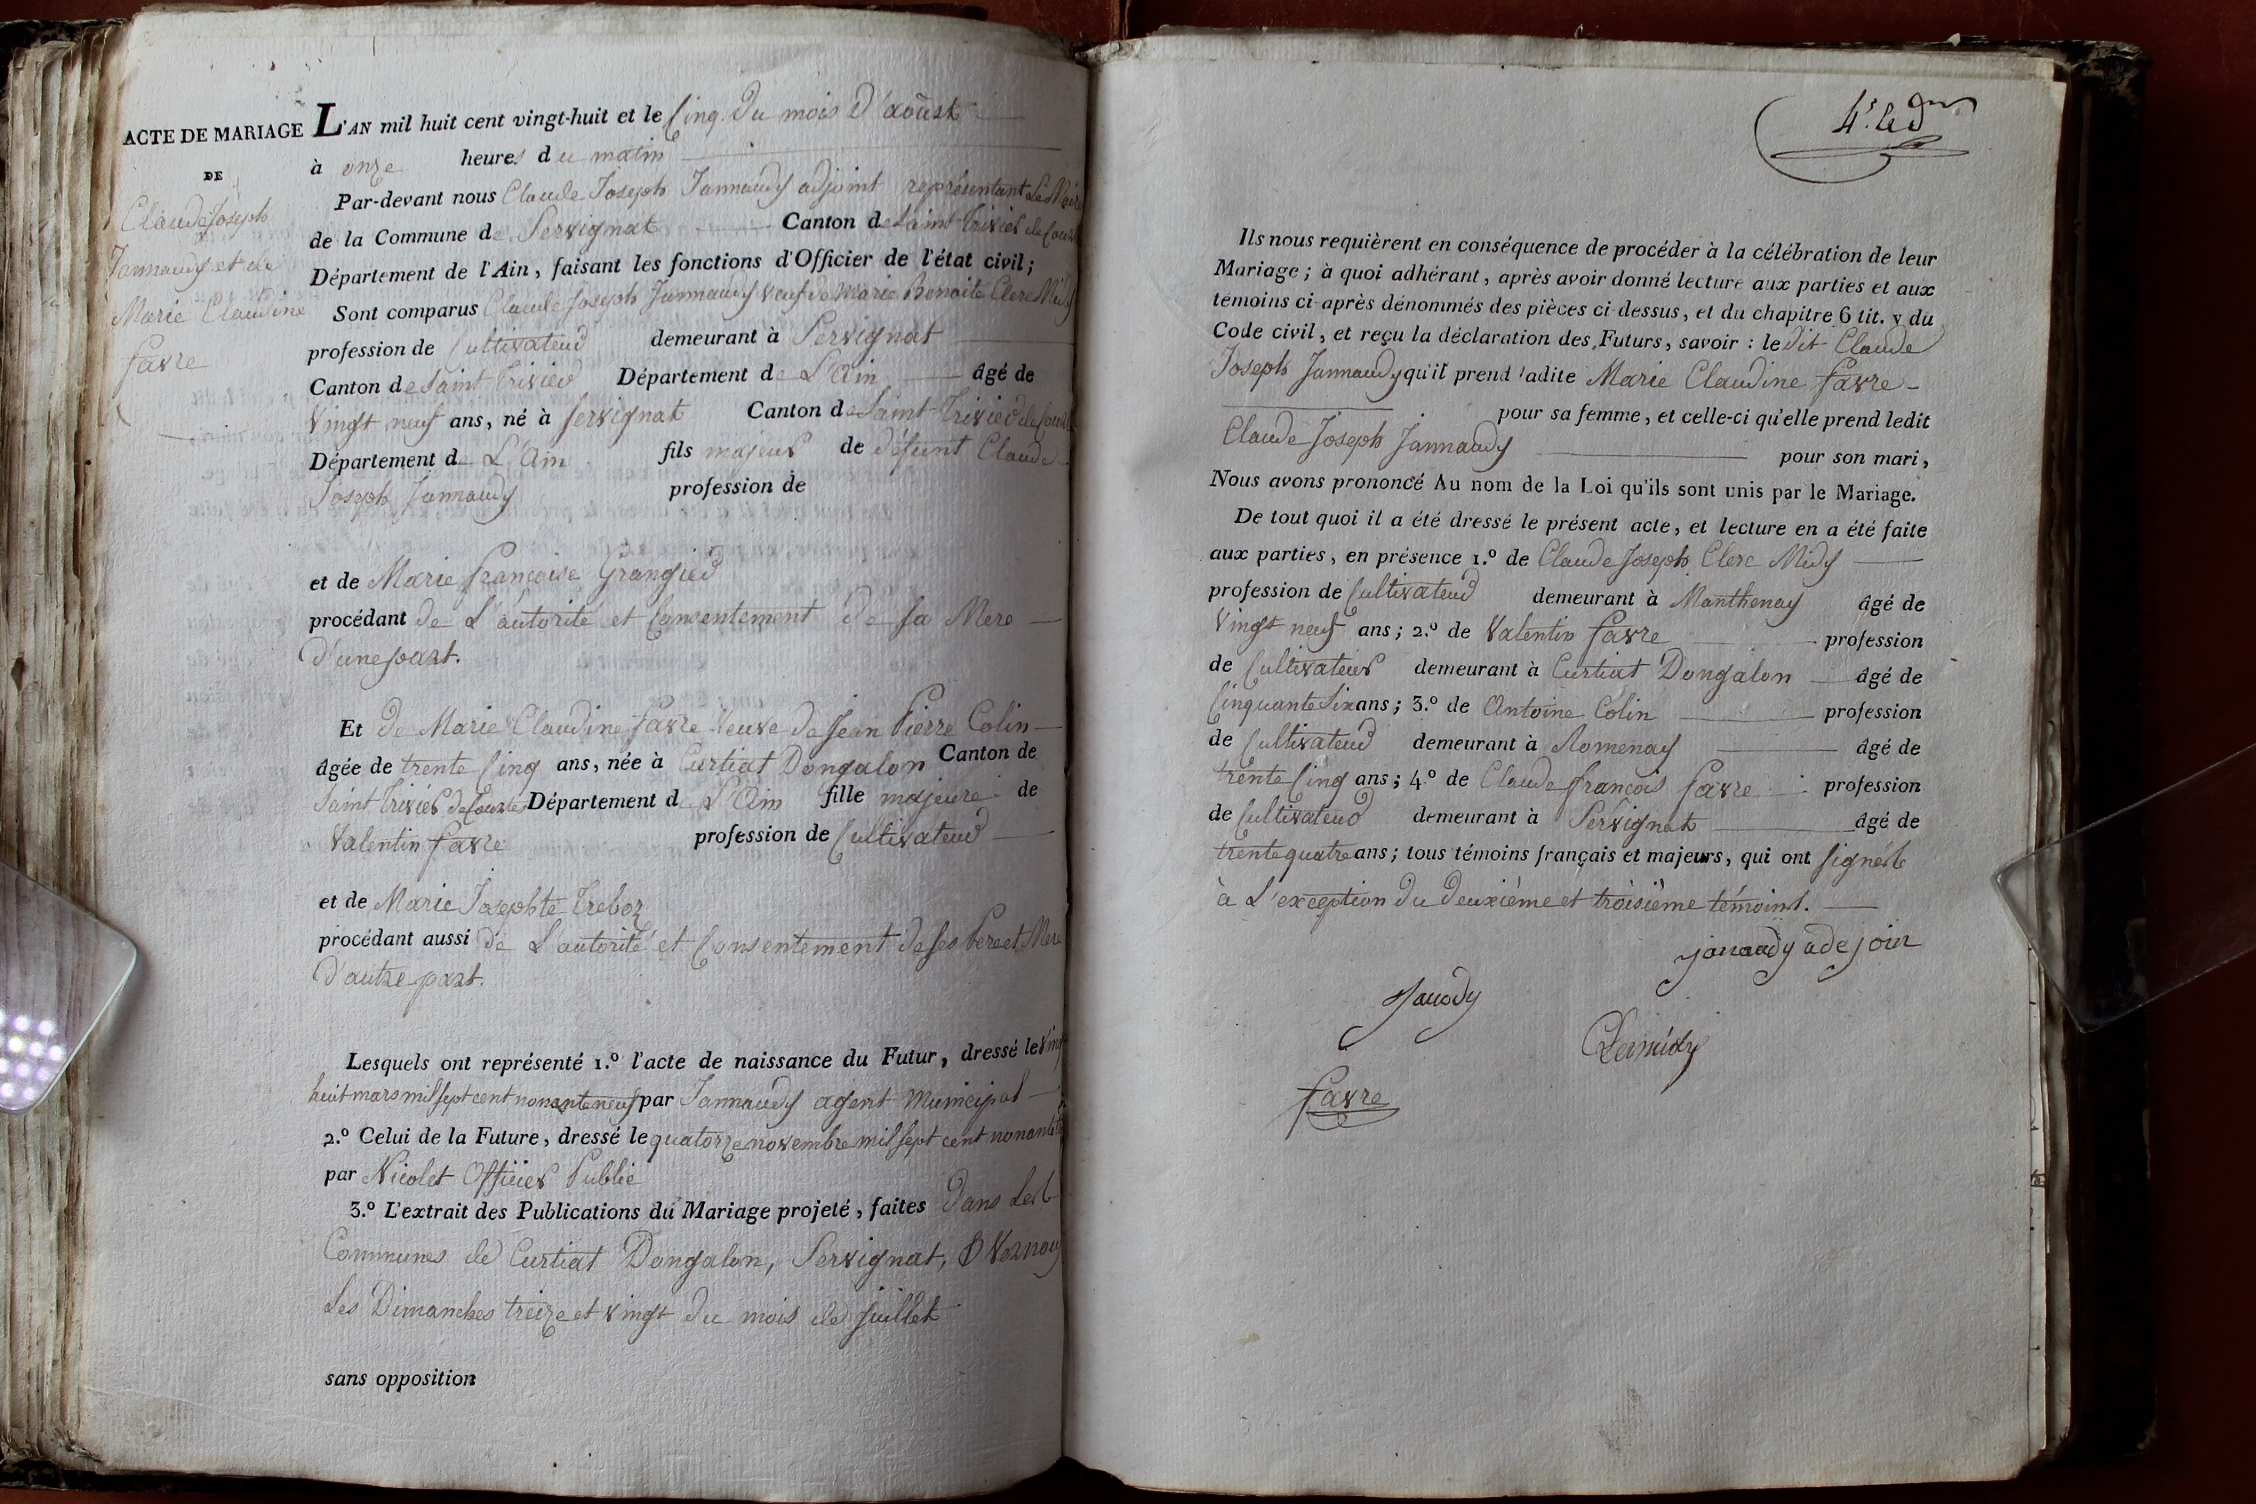 ACTE DE MARIAGE
DE
Claude Joseph
Jannaudy et de
Marie Claudine
favre
L'AN mil huit cent vingt-huit et le Cinq du mois d'aoust
à onze heures du matin
Par-devant nous Claude Joseph Jannaudy adjoint représentant Le Maire
de la Commune de Servignat Canton de Saint Trivier de Cour
Département de l'Ain, faisant les fonctions d'Officier de l'état civil;
Sont comparus Claude Joseph Jannaudy veuf de Marie Benoite Clere Midy
profession de Cultivateur demeurant à Servignat
Canton de Saint Trivier Département de L'Ain âgé de
Vingt neuf ans, né à Servignat Canton de Saint Trivier de Cour
Département de L'Ain fils majeur de défunt Claude
Joseph Jannaudy profession de
et de Marie françoise Grangier
procédant de L'autorité et Consentement de sa Mere
d'une part.
Et de Marie Claudine favre Veuve de Jean Pierre Colin
âgée de trente Cinq ans, née à Curtiat Dongalon Canton de
Saint Trivier de Courtes Département de L'Ain fille majeure de
Valentin favre profession de Cultivateur
et de Marie Josephte Treboz
procédant aussi de L'autorité et Consentement de ses Pere et Mere
d'autre part.
Lesquels ont représenté 1.º l'acte de naissance du Futur, dressé le Vingt
huit mars mil sept cent nonante neuf par Jannaudy agent Municipal
2.º Celui de la Future, dressé le quatorze novembre mil sept cent nonante
par Nicolet Officier Public
3.º L'extrait des Publications du Mariage projeté, faites dans Les
Communes de Curtiat Dongalon, Servignat, & Vernoux
Les Dimanches treize et vingt du mois de Juillet
sans opposition
Ils nous requièrent en conséquence de procéder à la célébration de leur
Mariage; à quoi adhérant, après avoir donné lecture aux parties et aux
témoins ci-après dénommés des pièces ci-dessus, et du chapitre 6 tit. v du
Code civil, et reçu la déclaration des Futurs, savoir: le dit Claude
Joseph Jannaudy qu'il prend ladite Marie Claudine favre
pour sa femme, et celle-ci qu'elle prend ledit
Claude Joseph Jannaudy pour son mari,
Nous avons prononcé Au nom de la Loi qu'ils sont unis par le Mariage.
De tout quoi il a été dressé le présent acte, et lecture en a été faite
aux parties, en présence 1.º de Claude Joseph Clere Midy
profession de Cultivateur demeurant à Manthenay âgé de
Vingt neuf ans; 2.º de Valentin favre profession
de Cultivateur demeurant à Curtiat Dongalon âgé de
Cinquante Six ans; 3.º de Antoine Colin profession
de Cultivateur demeurant à Romenay âgé de
trente Cinq ans; 4.º de Claude françois favre profession
de Cultivateur demeurant à Servignat âgé de
trente quatre ans; tous témoins français et majeurs, qui ont signés
à L'exception du deuxième et troisième témoins.
janaudy adejoin
Janody
Clermidy
favre